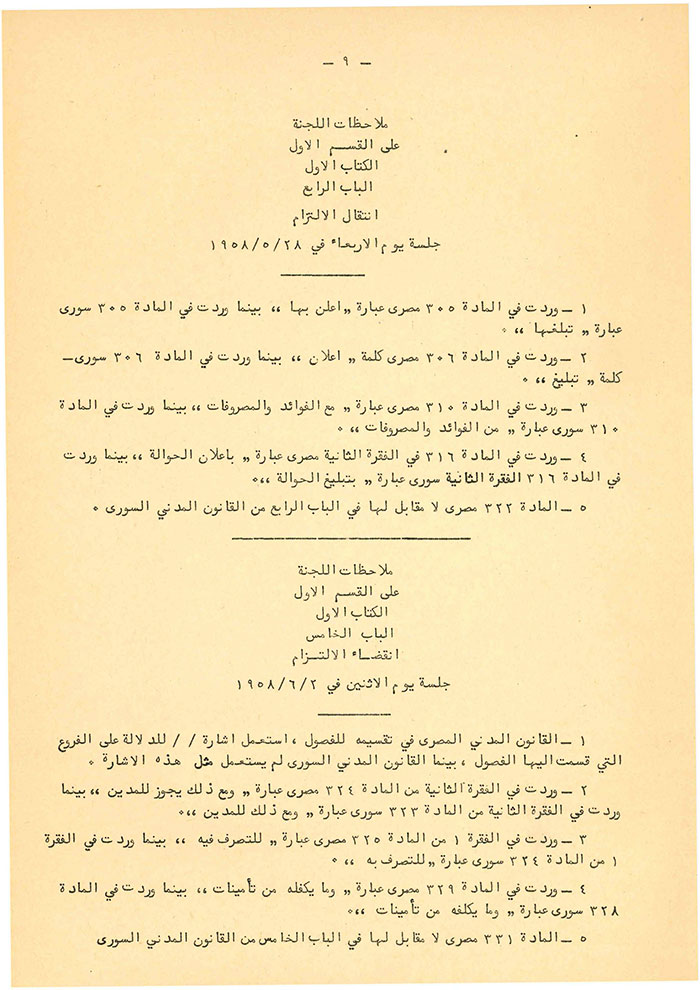 — ٩ —
ملاحظات اللجنة
على القسم الاول
الكتاب الاول
الباب الرابع
انتقال الالتزام
جلسة يوم الاربعاء في ١٩٥٨/٥/٢٨
١ ــ وردت في المادة ٣٠٥ مصرى عبارة „ اعلن بها ،، بينما وردت في المادة ٣٠٥ سورى
عبارة „ تبلغها ،، ٠
٢ ــ وردت في المادة ٣٠٦ مصرى كلمة „ اعلان ،، بينما وردت في المادة ٣٠٦ سورى ــ
كلمة „ تبليغ ،، ٠
٣ ــ وردت في المادة ٣١٠ مصرى عبارة „ مع الفوائد والمصروفات ،، بينما وردت في المادة
٣١٠ سورى عبارة „ من الفوائد والمصروفات ،، ٠
٤ ــ وردت في المادة ٣١٦ في الفقرة الثانية مصرى عبارة „ باعلان الحوالة ،، بينما وردت
في المادة ٣١٦ الفقرة الثانية سورى عبارة „ بتبليغ الحوالة ،،٠
٥ ــ المادة ٣٢٢ مصرى لا مقابل لها في الباب الرابع من القانون المدني السورى ٠
ملاحظات اللجنة
على القسم الاول
الكتاب الاول
الباب الخامس
انقضاء الالتزام
جلسة يوم الاثنين في ١٩٥٨/٦/٢
١ ــ القانون المدني المصرى في تقسيمه للفصول ، استعمل اشارة / / للدلالة على الفروع
التي قسمت اليها الفصول ، بينما القانون المدني السورى لم يستعمل مثل هذه الاشارة ٠
٢ ــ وردت في الفقرة الثانية من المادة ٣٢٤ مصرى عبارة „ ومع ذلك يجوز للمدين ،، بينما
وردت في الفقرة الثانية من المادة ٣٢٣ سورى عبارة „ ومع ذلك للمدين ،،٠
٣ ــ وردت في الفقرة ١ من المادة ٣٢٥ مصرى عبارة „ للتصرف فيه ،، بينما وردت في الفقرة
١ من المادة ٣٢٤ سورى عبارة „ للتصرف به ،، ٠
٤ ــ وردت في المادة ٣٢٩ مصرى عبارة „ وما يكفله من تأمينات ،، بينما وردت في المادة
٣٢٨ سورى عبارة „ وما يكلفه من تأمينات ،،٠
٥ ــ المادة ٣٣١ مصرى لا مقابل لها في الباب الخامس من القانون المدني السورى